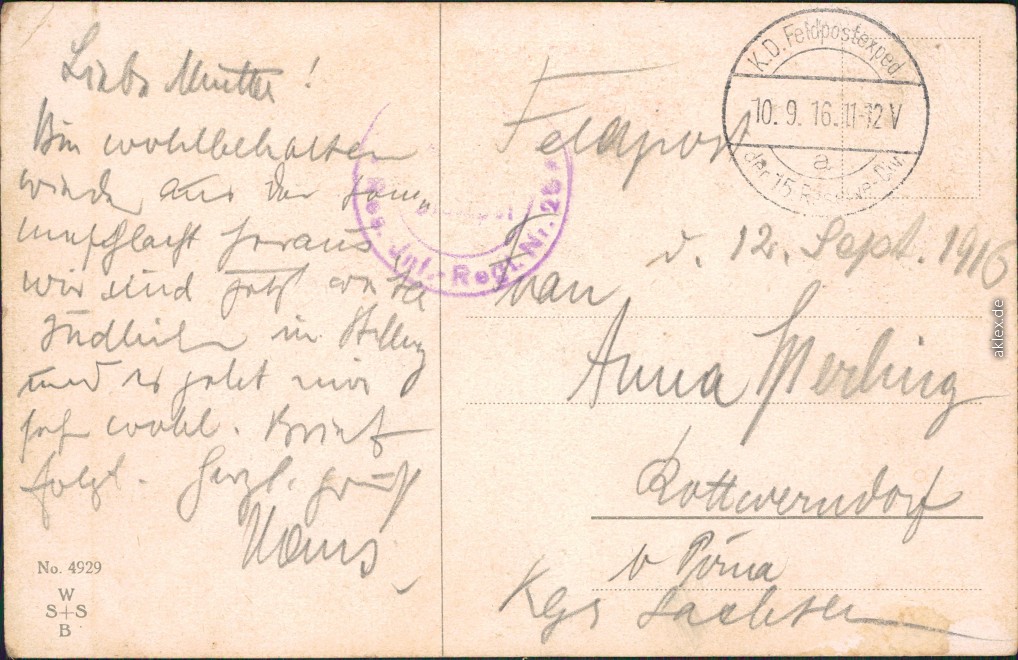 Liebe Mutter!
Bin wohlbehalten
wieder aus der Somme
schlacht heraus
wir sind jetzt weiter
südlich in Stellung
und es geht mir
sehr wohl. Brief
folgt. Herzl. Gruß
Hans.
No. 4929
W
S+S
B
Feldpost
K.D. Feldpostexped.
10. 9. 16. 11-12 V
a
der 15. Reserve-Div.
Res. Inf.-Regt. Nr.
v. 12. Sept. 1916
Frau
Anna Merbing
Rottwerndorf
b Pirna
Kgr Sachsen
aklex.de